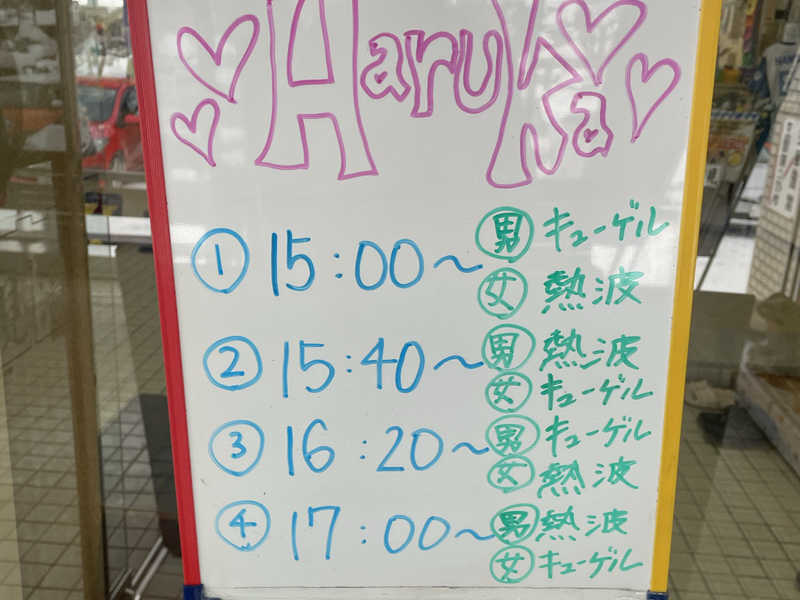 Haruka
① 15:00～ 男 キューゲル
女 熱波
② 15:40～ 男 熱波
女 キューゲル
③ 16:20～ 男 キューゲル
女 熱波
④ 17:00～ 男 熱波
女 キューゲル